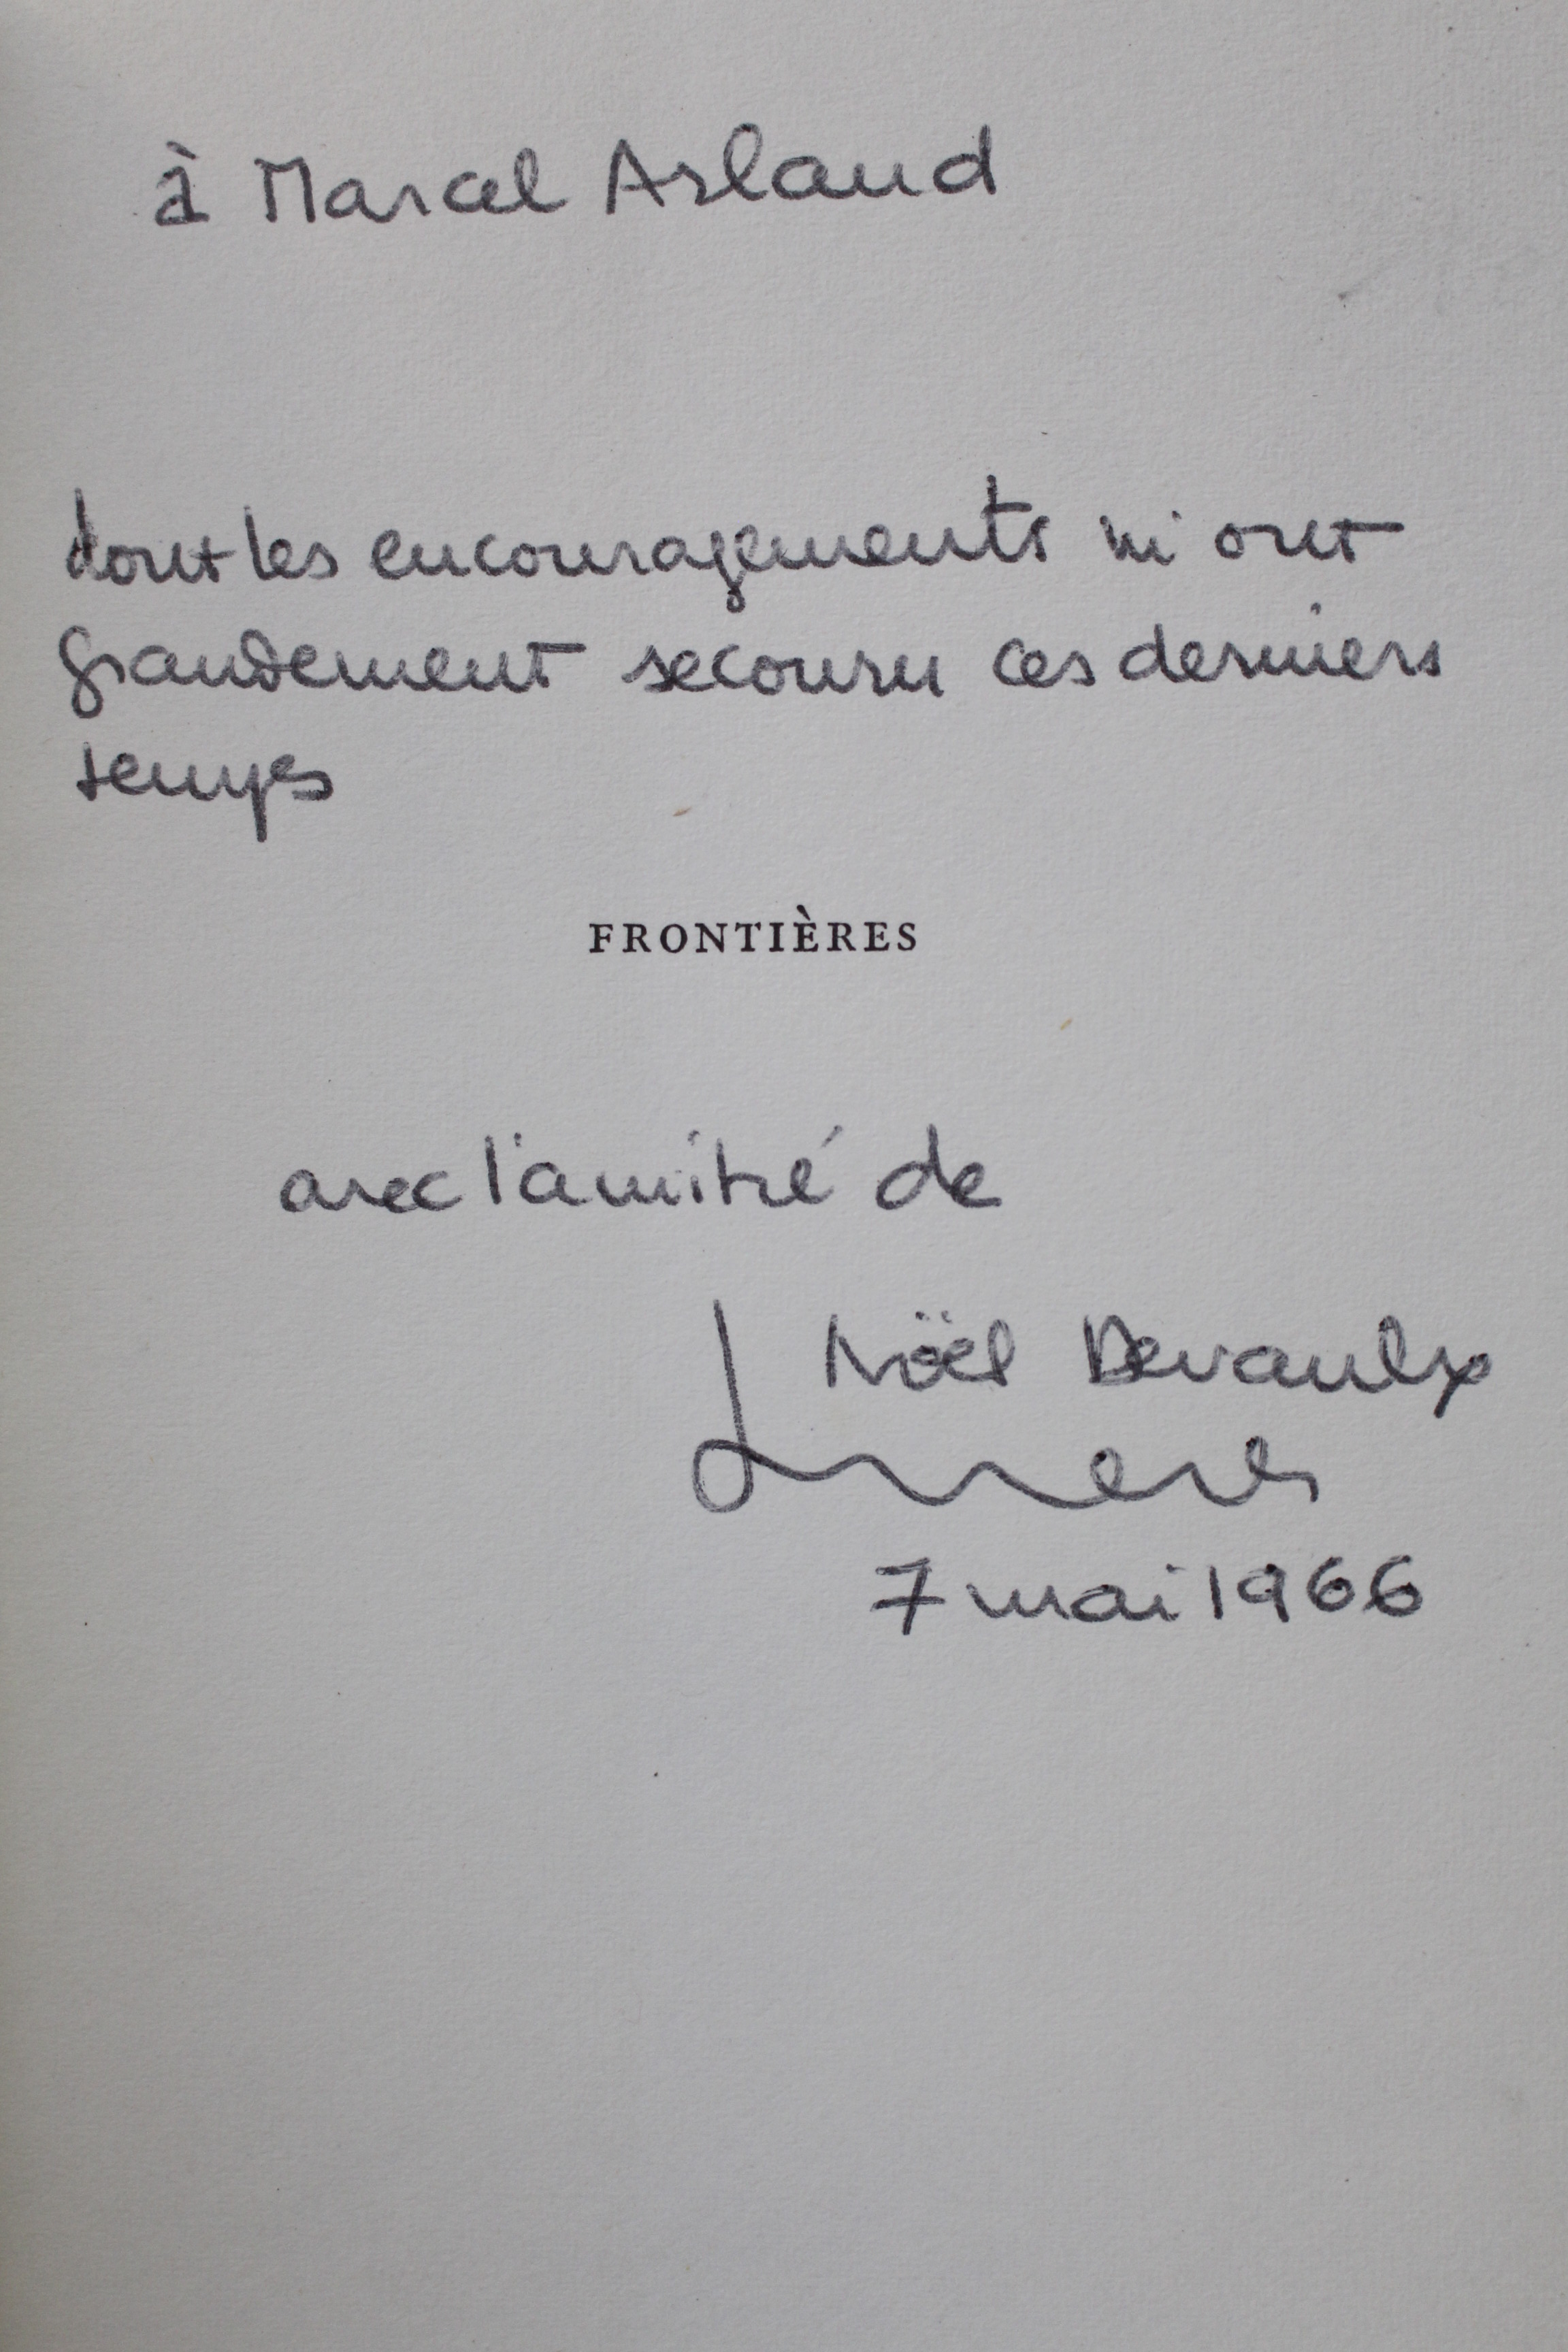 à Marcel Arland
dont les encouragements m'ont
grandement secouru ces derniers
temps
FRONTIÈRES
avec l'amitié de
Noël Devaulx
7 mai 1966